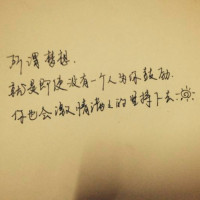 所谓梦想.
就是即使没有一个人为你鼓励.
你也会激情满满的坚持下去